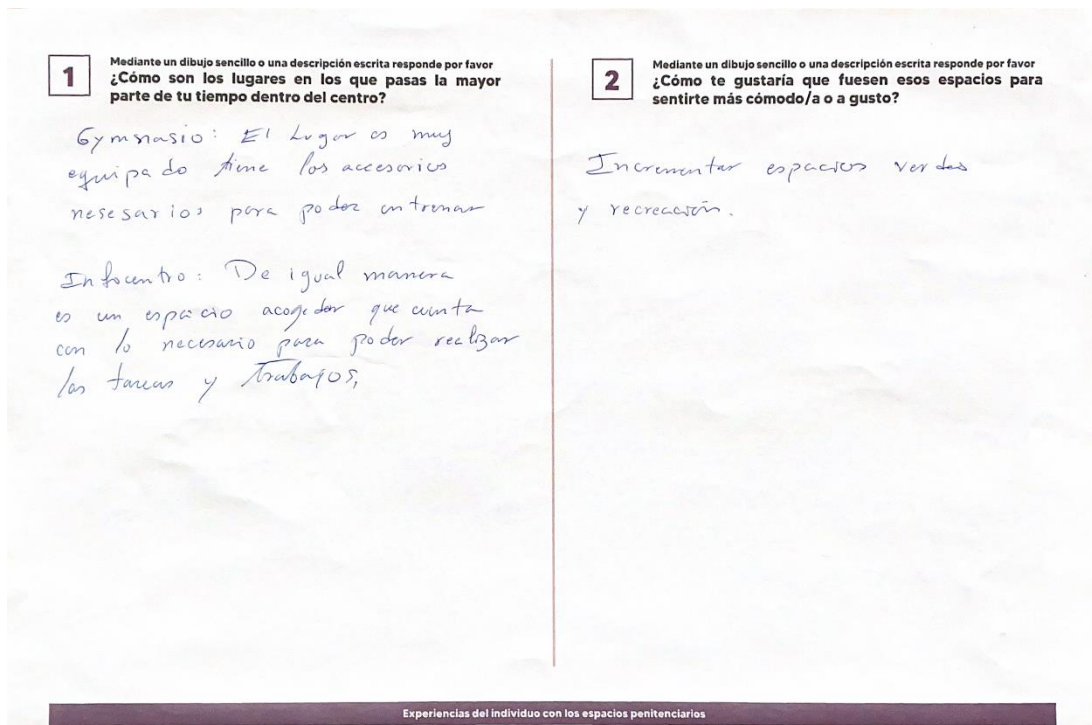 1
Mediante un dibujo sencillo o una descripción escrita responde por favor
¿Cómo son los lugares en los que pasas la mayor
parte de tu tiempo dentro del centro?
Gymnasio: El Lugar es muy
equipado tiene los accesorios
nesesarios para poder entrenar
Infocentro: De igual manera
es un espacio acogedor que cuenta
con lo necesario para poder realizar
las tareas y Trabajos,
2
Mediante un dibujo sencillo o una descripción escrita responde por favor
¿Cómo te gustaría que fuesen esos espacios para
sentirte más cómodo/a o a gusto?
Incrementar espacios verdes
y recreación.
Experiencias del individuo con los espacios penitenciarios